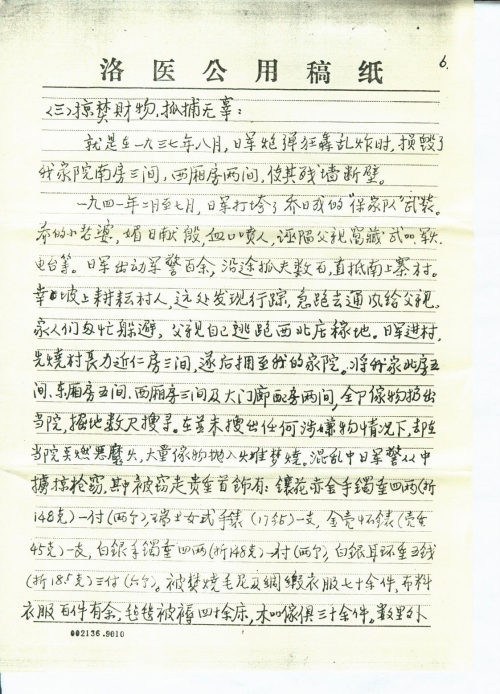 6.
洛医公用稿纸
(三)掠焚财物、抓捕无辜:
就是在一九三七年八月,日军炮弹狂轰乱炸时,损毁了
我家院南房三间,西厢房两间,使其残墙断壁。
一九四一年二月至七月,日军打垮了乔日成的“保家队”武装。
乔的小老婆,媚日献殷,血口喷人,诬陷父亲窝藏武器、军火、
电台等。日军出动军警百余,沿途抓夫数百,直抵南上寨村。
幸坡上耕耘村人,远处发现行踪,急跑去通风给父亲,
家人们匆忙躲避,父亲自己逃跑西北庄稼地。日军进村,
先烧村长力近仁房三间,遂后拥至我的家院。将我家北房五
间、东厢房五间、西厢房三间及大门廊配房两间,全部傢物扔出
当院,掘地数尺搜寻。在并未搜出任何涉嫌物情况下,却在
当院点燃恶魔火,大量傢物抛入火堆焚烧。混乱中日军警从中
掳掠抢窃,其中被窃走贵重首饰有:镶花赤金手镯重四两(折
148克)一付(两个),瑞士女式手錶(17钻)一支,金壳怀錶(壳重
45克)一支,白银手镯重四两(折148克)一付(两个),白银耳环重五钱
(折18.5克)三付(六个)。被焚烧毛尼及绸缎衣服七十余件,布料
衣服百件有余,毡毯被褥四十余床,木器傢俱三十余件。数里外
002136.9010